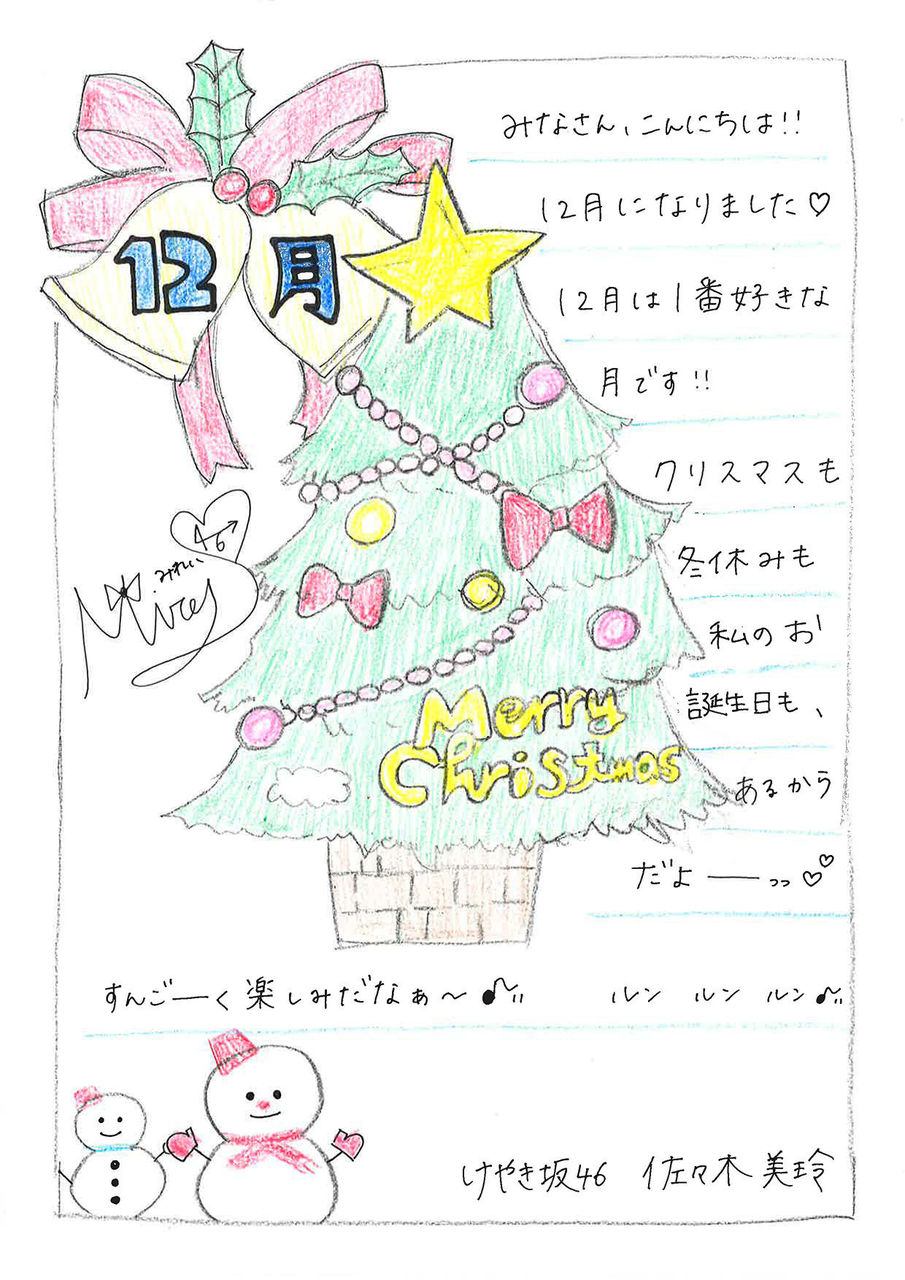 12月
みなさん、こんにちは!!
12月になりました♡
12月は1番好きな
月です!!
クリスマスも
冬休みも
私のお
誕生日も、
あるから
だよ──っっ♡♡
すんご─く楽しみだなぁ〜♪　ルン　ルン　ルン♪
46
みれい
Mirey
Merry
Christmas
けやき坂46　佐々木美玲